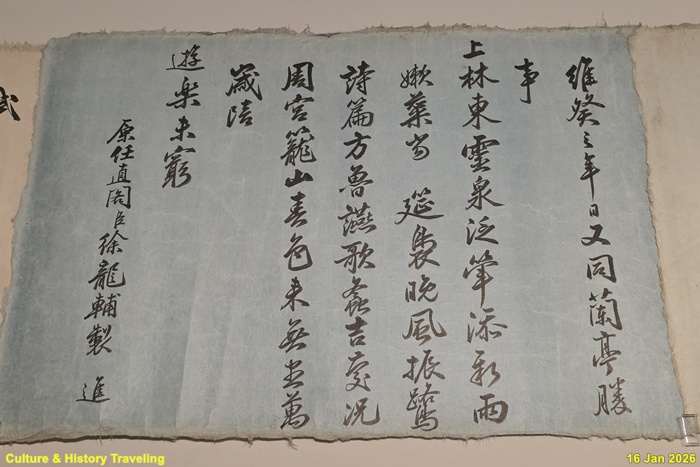 維癸之年日又同蘭亭勝
事
上林東靈泉泛筆添新雨
嫩葉當 筵裊晚風振鷺
詩篇方魯讌歌螽吉慶況
周宮籠山春色來無盡萬
歲陪
遊樂未窮
原任直閣臣徐龍輔製 進
Culture & History Traveling
16 Jan 2026